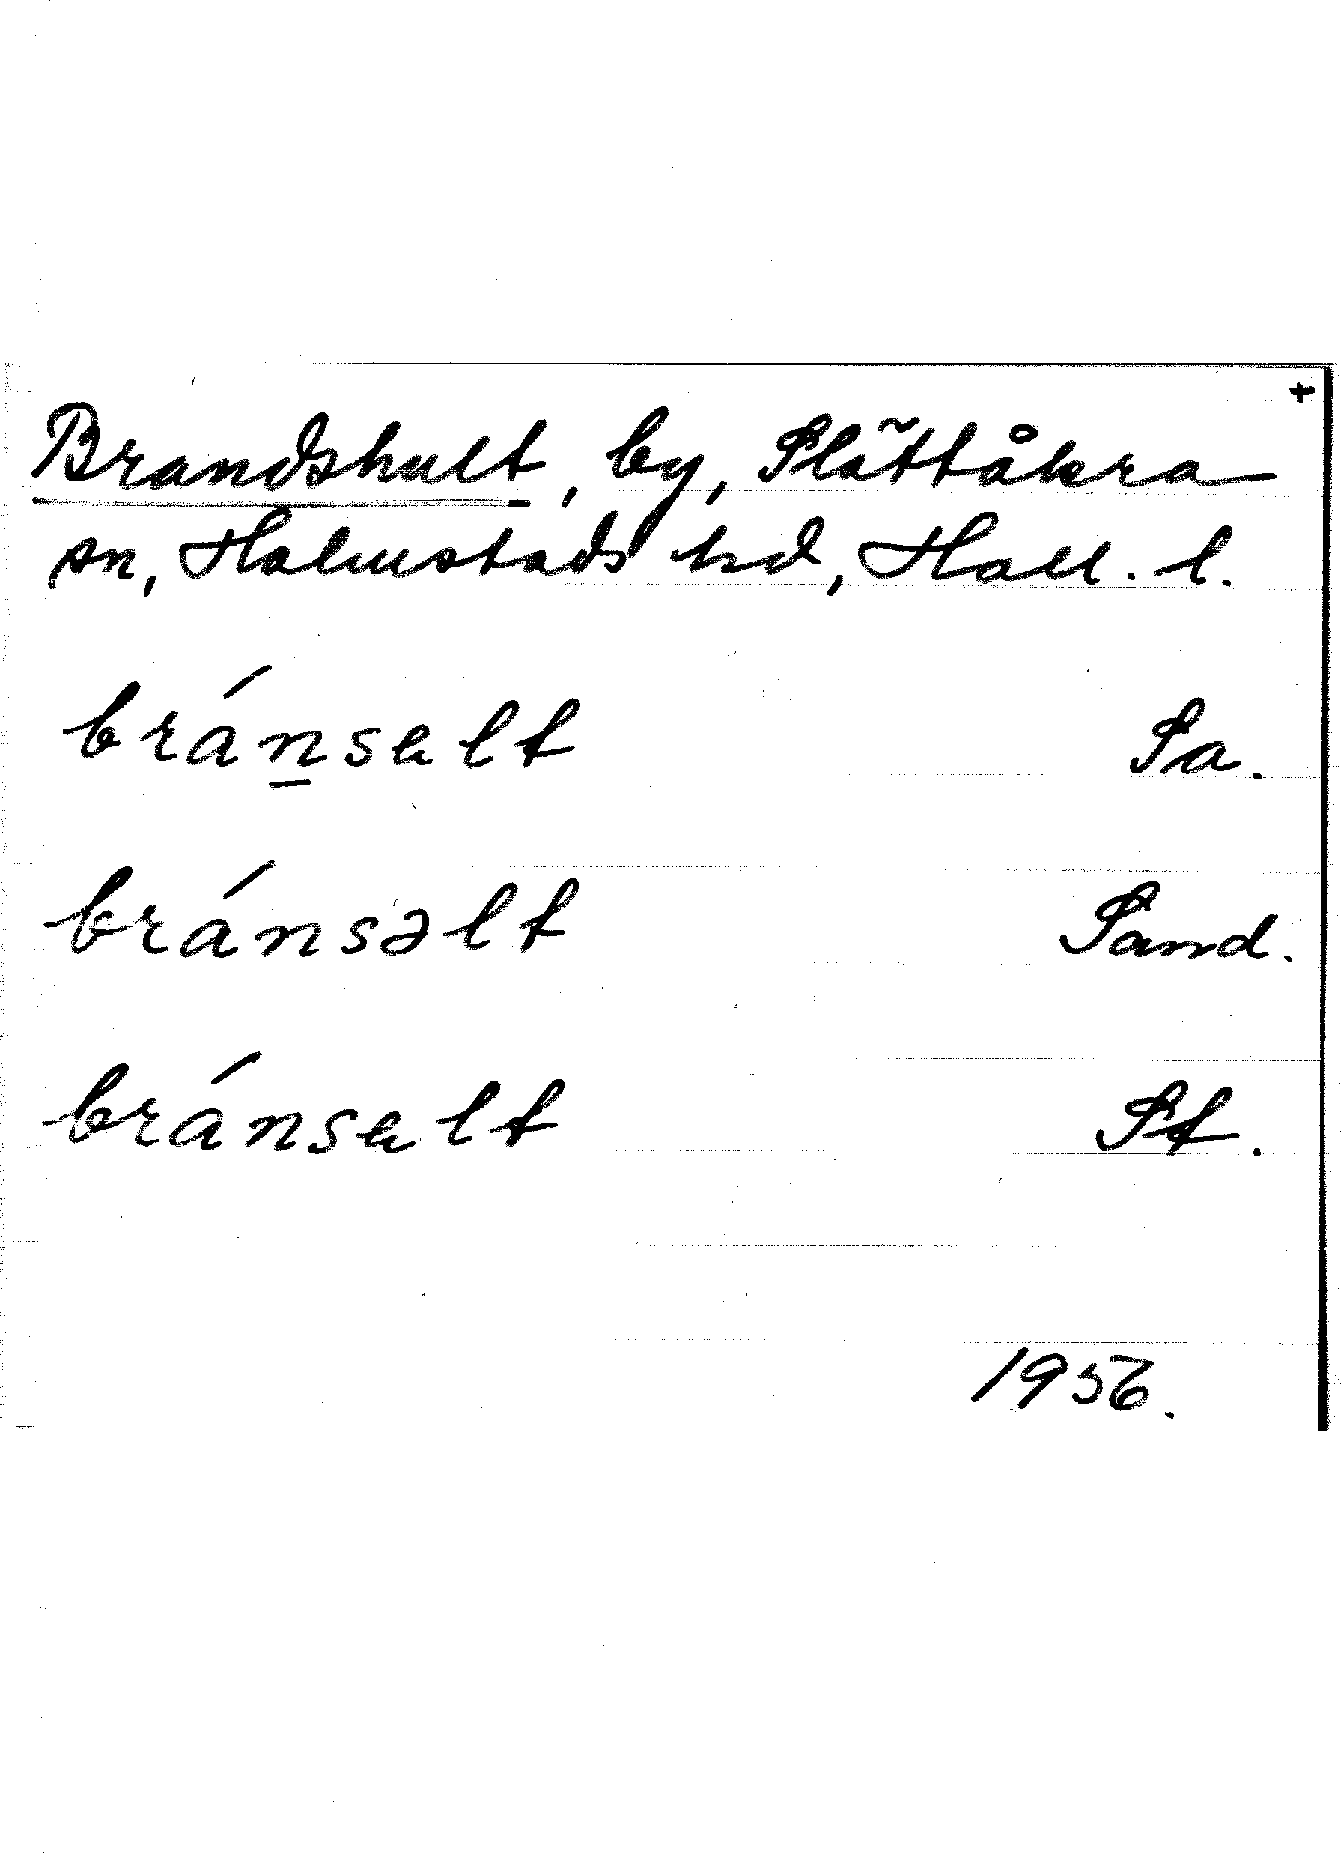 +
Brandshult, by, Slättåkra
sn, Halmstads hd, Hall. l.
bránselt Sa.
bránsəlt Sand.
bránselt St.
1956.